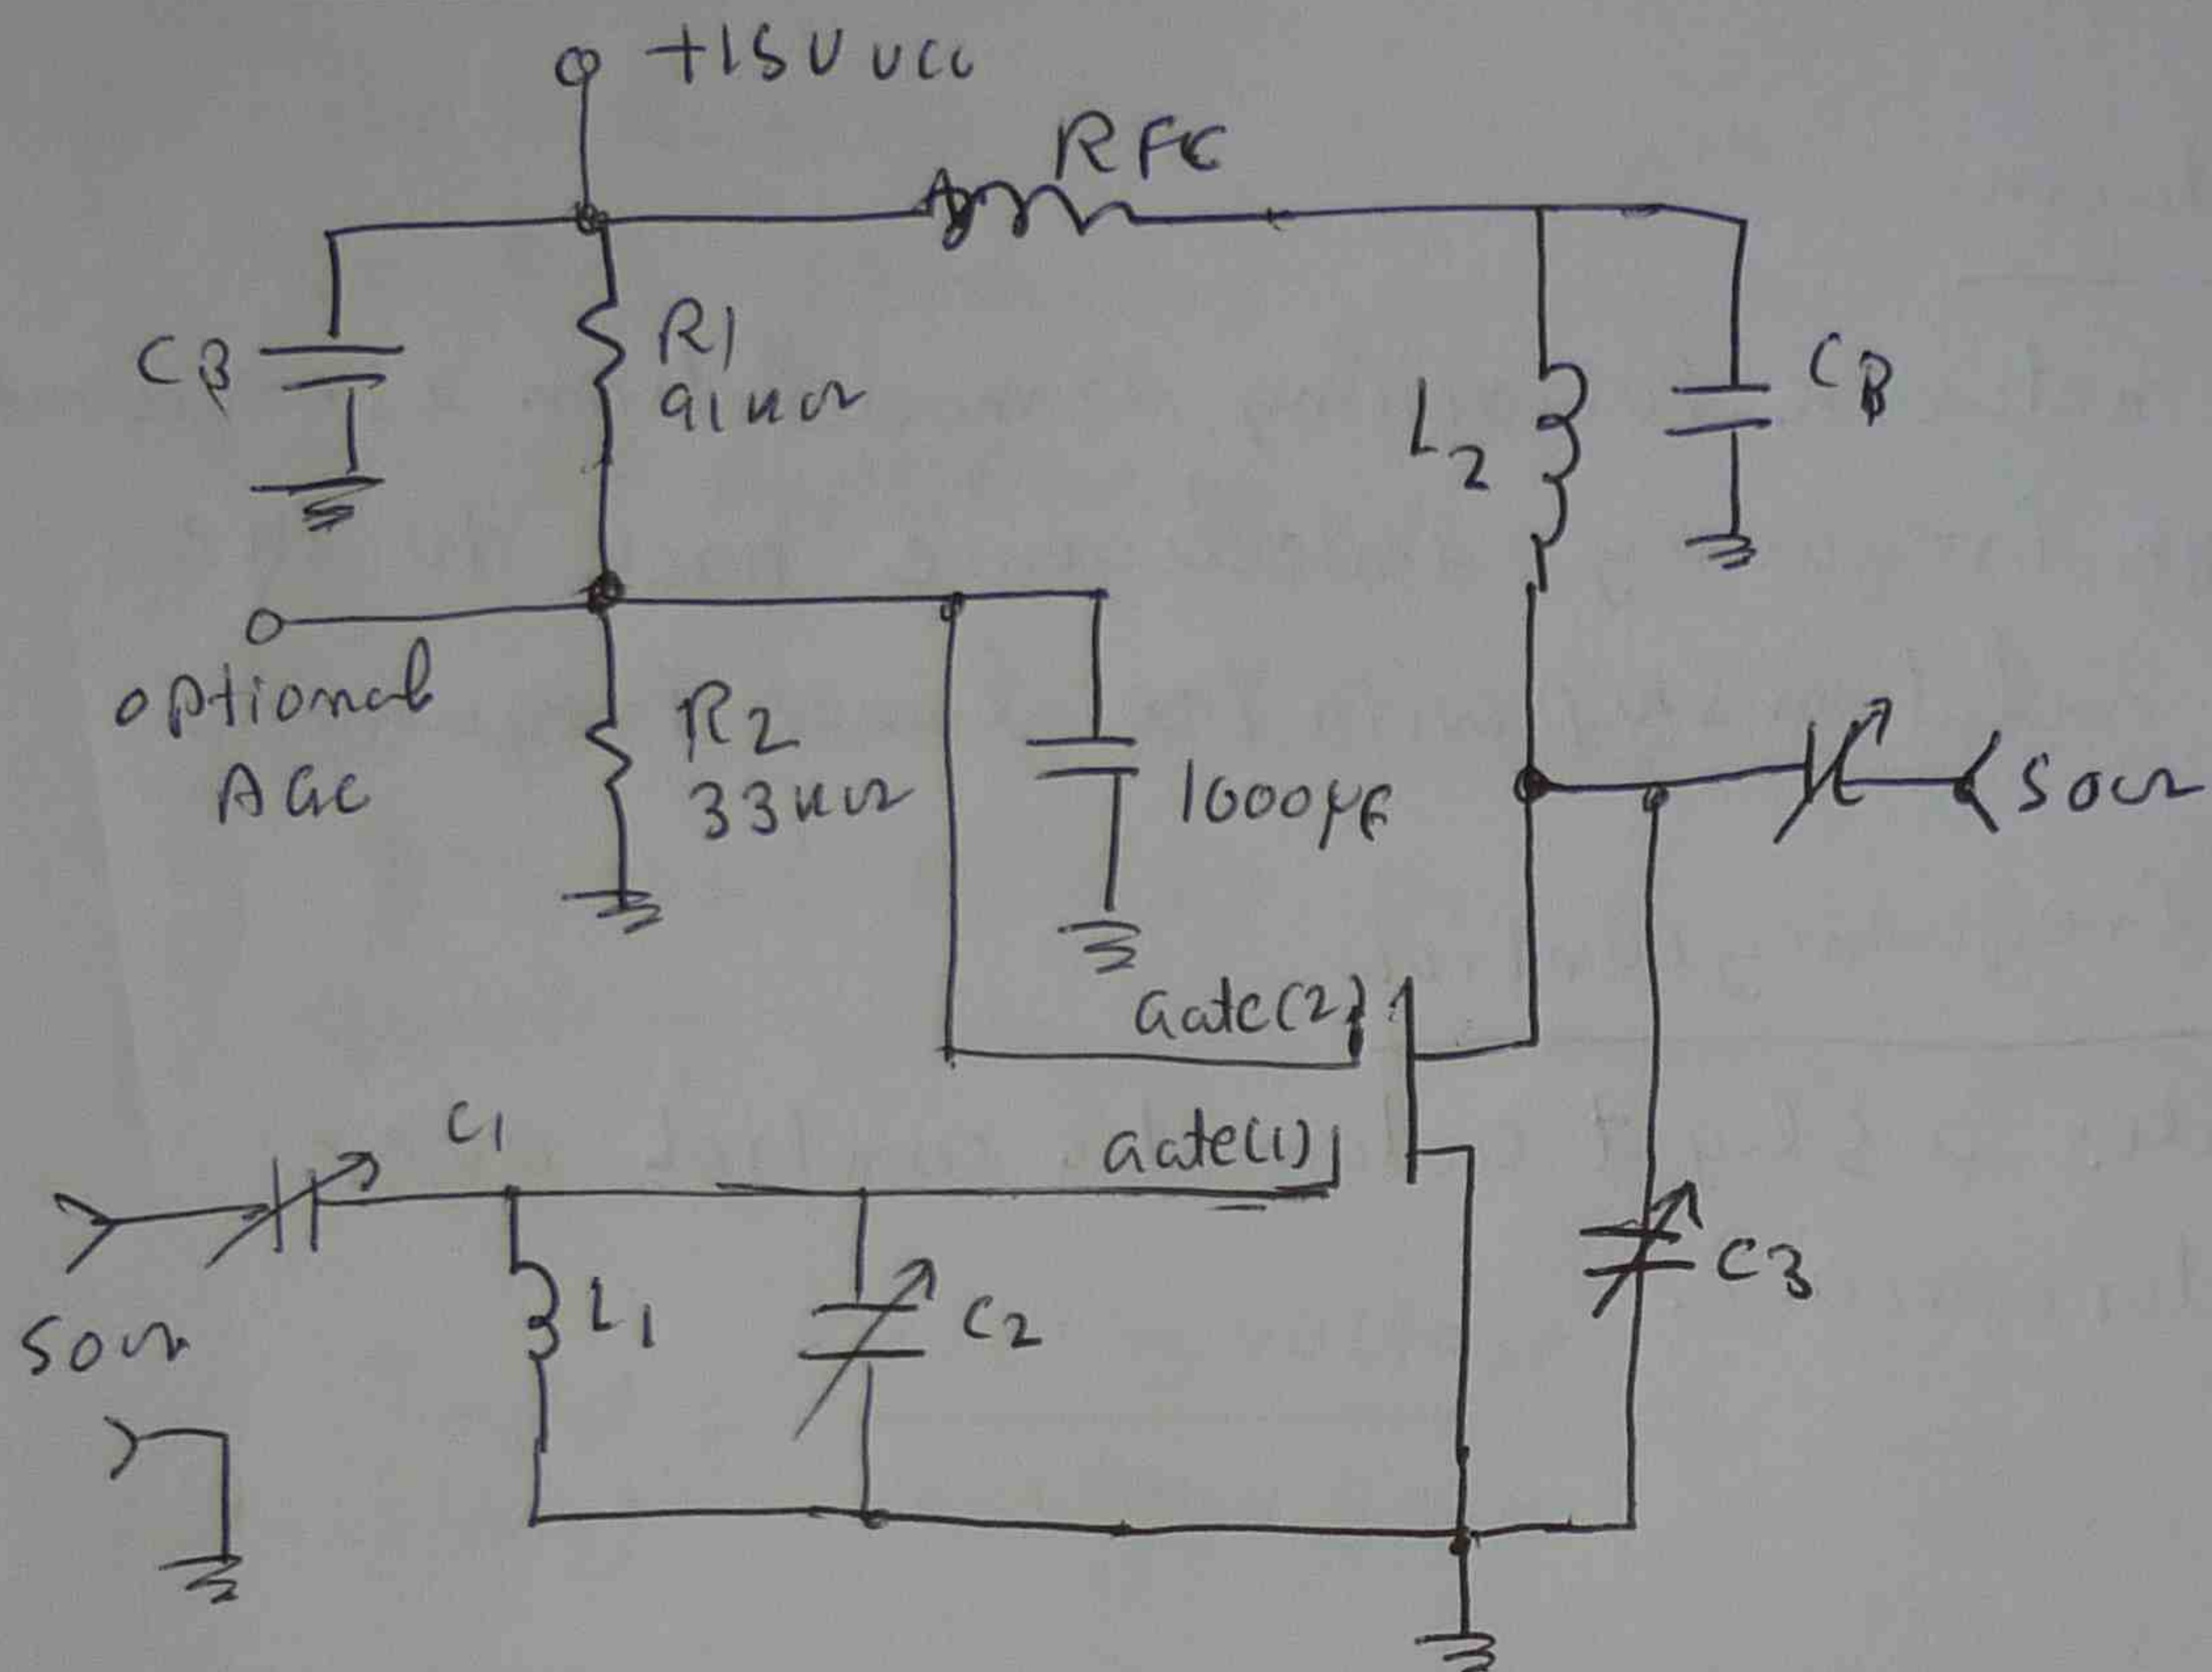 +15V VCC
RFC
CB
R1
91kΩ
L2
CB
optional
AGC
R2
33kΩ
1000μF
50Ω
Gate(2)
C1
Gate(1)
50Ω
L1
C2
C3